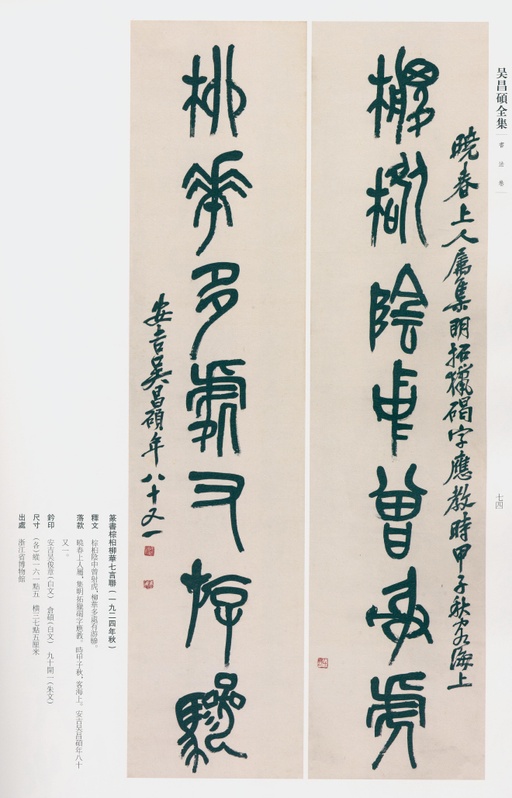 吴昌碩全集
書法卷
七四
曉春上人屬集明拓獵碣字應教時甲子秋客海上
陰中曾射虎
柳華多處又斿驂
安吉吳昌碩年八十又一
篆書棕柏柳華七言聯（一九二四年秋）
釋文 棕柏陰中曾射虎，柳華多處有游驂。
落款 曉春上人屬，集明拓獵碣字應教。時甲子秋，客海上。安吉吳昌碩年八十
又一。
鈐印 安吉吳俊章（白文） 倉碩（白文） 九十開一（朱文）
尺寸 （各）縱一六一點五 橫三七點五厘米
出處 浙江省博物館